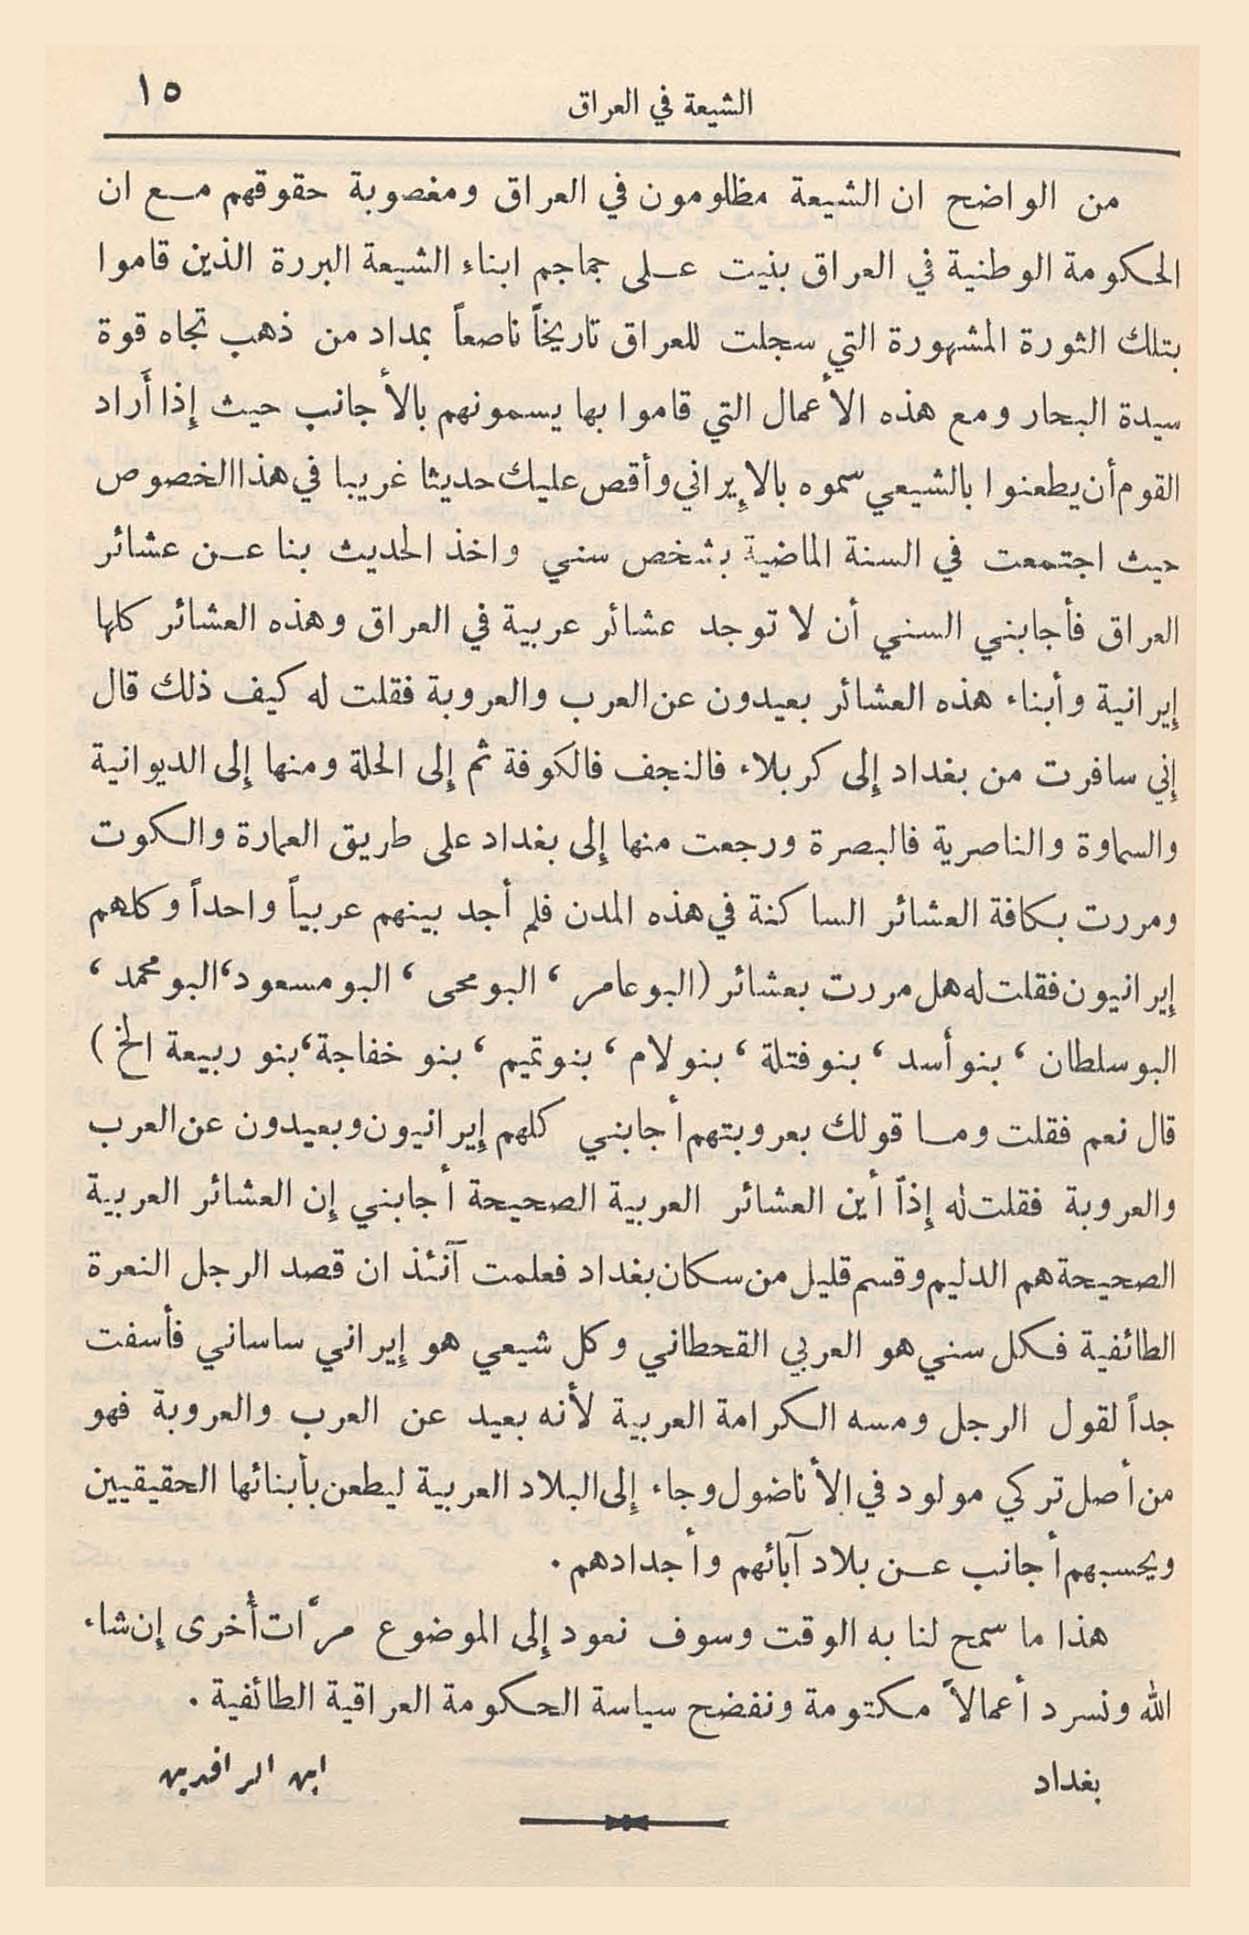 الشيعة في العراق
١٥
من الواضح ان الشيعة مظلومون في العراق ومغصوبة حقوقهم مع ان
الحكومة الوطنية في العراق بنيت على جماجم ابناء الشيعة البررة الذين قاموا
بتلك الثورة المشهورة التي سجلت للعراق تاريخاً ناصعاً بمداد من ذهب تجاه قوة
سيدة البحار ومع هذه الأعمال التي قاموا بها يسمونهم بالأجانب حيث إذا أراد
القوم أن يطعنوا بالشيعي سموه بالإيراني وأقص عليك حديثا غريبا في هذا الخصوص
حيث اجتمعت في السنة الماضية بشخص سني واخذ الحديث بنا عن عشائر
العراق فأجابني السني أن لا توجد عشائر عربية في العراق وهذه العشائر كلها
إيرانية وأبناء هذه العشائر بعيدون عن العرب والعروبة فقلت له كيف ذلك قال
إني سافرت من بغداد إلى كربلاء فالنجف فالكوفة ثم إلى الحلة ومنها إلى الديوانية
والسماوة والناصرية فالبصرة ورجعت منها إلى بغداد على طريق العمارة والكوت
ومررت بكافة العشائر الساكنة في هذه المدن فلم أجد بينهم عربياً واحداً وكلهم
إيرانيون فقلت له هل مررت بعشائر (البو عامر ، البو محى ، البو مسعود، البو محمد ،
البو سلطان ، بنو أسد ، بنو فتلة ، بنو لام ، بنو تميم ، بنو خفاجة، بنو ربيعة الخ )
قال نعم فقلت وما قولك بعروبتهم أجابني كلهم إيرانيون وبعيدون عن العرب
والعروبة فقلت له إذاً أين العشائر العربية الصحيحة أجابني إن العشائر العربية
الصحيحة هم الدليم وقسم قليل من سكان بغداد فعلمت آنئذ ان قصد الرجل النعرة
الطائفية فكل سني هو العربي القحطاني وكل شيعي هو إيراني ساساني فأسفت
جداً لقول الرجل ومسه الكرامة العربية لأنه بعيد عن العرب والعروبة فهو
من أصل تركي مولود في الأناضول وجاء إلى البلاد العربية ليطعن بأبنائها الحقيقيين
ويحسبهم أجانب عن بلاد آبائهم وأجدادهم .
هذا ما سمح لنا به الوقت وسوف نعود إلى الموضوع مرَّات أُخرى إن شاء
الله ونسرد أعمالاً مكتومة ونفضح سياسة الحكومة العراقية الطائفية .
بغداد
ابن الرافدين